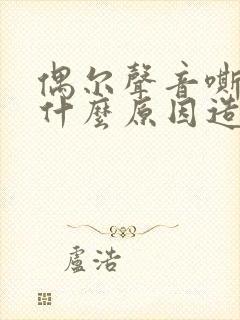 偶尔聲音嘶
什麼原因造
盧浩